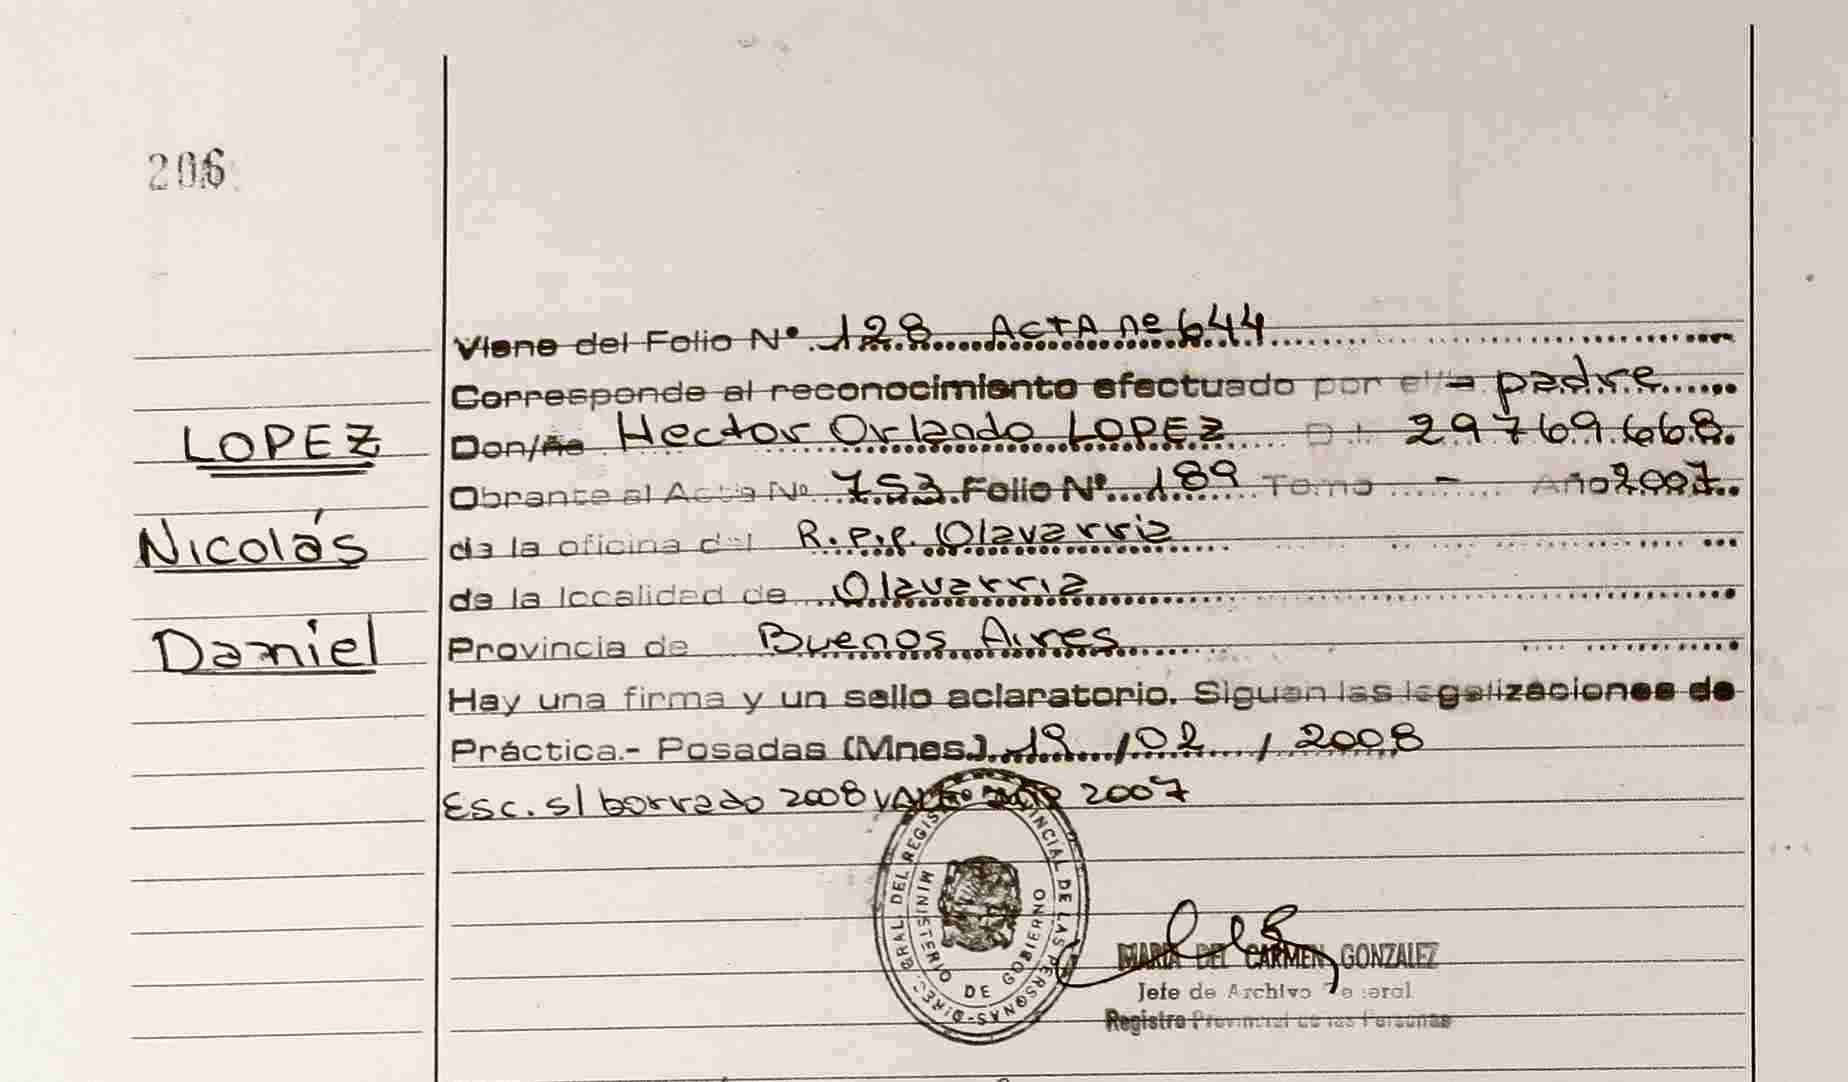 206
Viene del Folio Nº 128 ACTA nº 644
Corresponde al reconocimiento efectuado por el/la padre
LOPEZ
Don/ña Hector Orlando LOPEZ D.I. 29769.668.
Obrante al Acta Nº 753 Folio Nº 189 Tomo - Año 2007
Nicolás
de la oficina del R.P.P. Olavarria
de la localidad de Olavarria
Daniel
Provincia de Buenos Aires
Hay una firma y un sello aclaratorio. Siguen las legalizaciones de
Práctica.- Posadas (Mnes.) 19 / 02 / 2008
Esc. s/ borrado 2008 VALE 2007
DIREC. GRAL. DEL REGISTRO PROVINCIAL DE LAS PERSONAS
MINISTERIO DE GOBIERNO
MARIA DEL CARMEN GONZALEZ
Jefe de Archivo General
Registro Provincial de las Personas